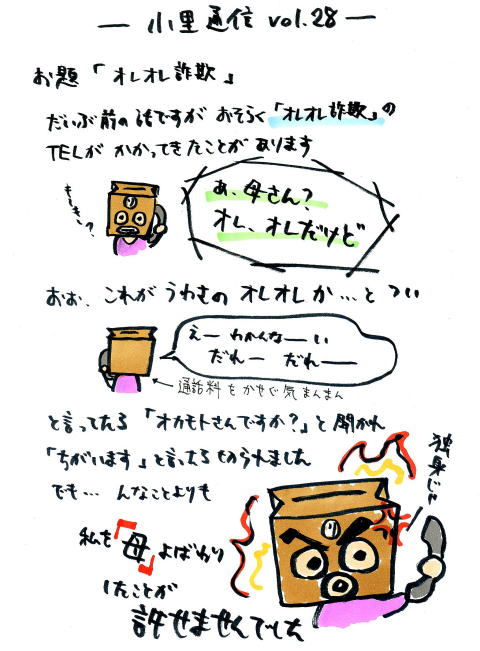 ― 小里通信 vol.28 ―
お題「オレオレ詐欺」
だいぶ前の話ですが おそらく「オレオレ詐欺」の
TELが かかってきたことが あります
もしもし?
あ、母さん?
オレ、オレだけど
おお、これが うわさの オレオレか…と つい
えー わかんなーい
だれー だれー
← 通話料をかせぐ気まんまん
と言ってたら 「オカモトさんですか?」と聞かれ
「ちがいます」と言ったら切られました
でも… んなことよりも
独身じゃ
私を「母」よばわり
したことが
許せませんでした